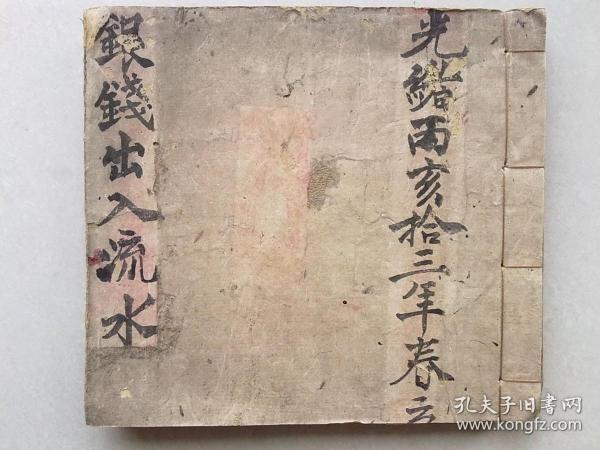 光緒丙亥拾三年春
銀錢出入流水
孔夫子旧書网
www.kongfz.com